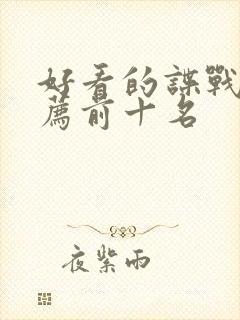 好看的諜戰
薦前十名
夜紫雨